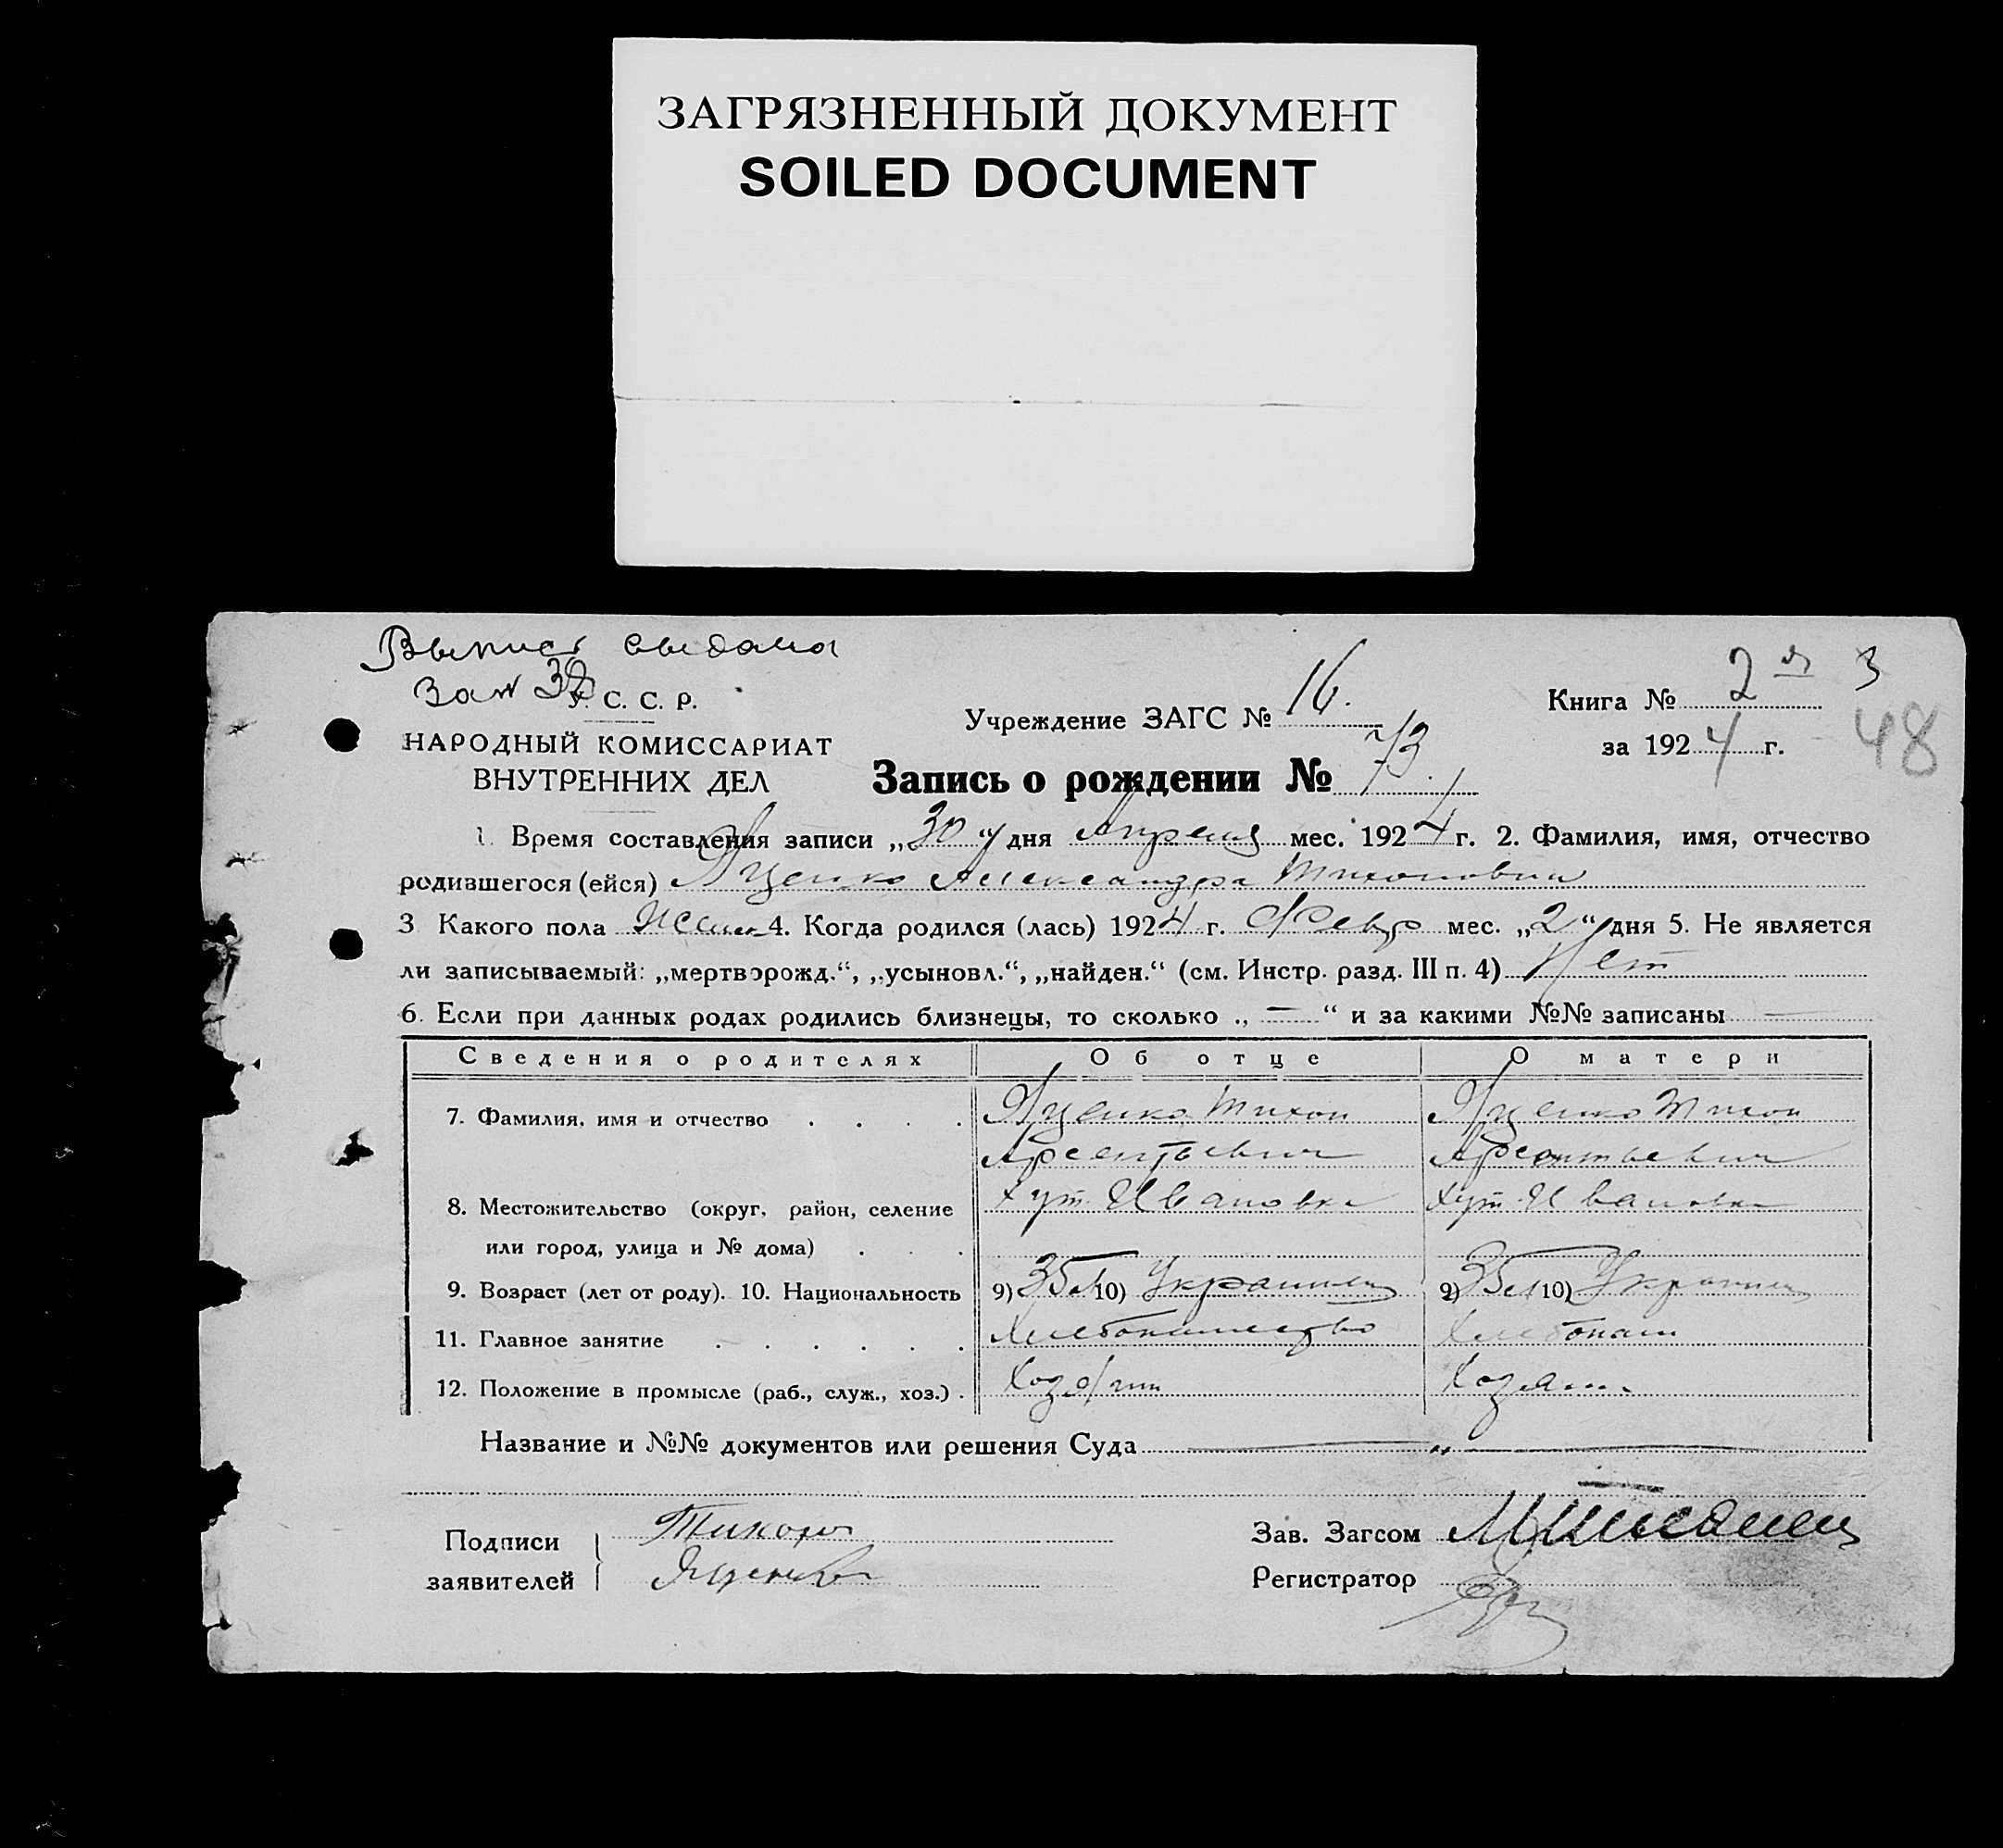 ЗАГРЯЗНЕННЫЙ ДОКУМЕНТ
SOILED DOCUMENT
Выпись выдана
за № 38
С. С. Р.
НАРОДНЫЙ КОМИССАРИАТ
ВНУТРЕННИХ ДЕЛ
Учреждение ЗАГС № 16.
Книга № 2 3
за 1924 г. 48
Запись о рождении № 73.
1. Время составления записи „30“ дня Апреля мес. 1924 г. 2. Фамилия, имя, отчество
родившегося (ейся) Яценко Александра Тихоновна
3 Какого пола Женск 4. Когда родился (лась) 1924 г. Февр мес. „2“ дня 5. Не является
ли записываемый: „мертворожд.“, „усыновл.“, „найден.“ (см. Инстр. разд. III п. 4) Нет
6. Если при данных родах родились близнецы, то сколько „—“ и за какими №№ записаны —
Сведения о родителях Об отце О матери
7. Фамилия, имя и отчество . . . . Яценко Тихон Яценко Тихон
Арсентьевич Арсентьевич
8. Местожительство (округ, район, селение хут. Ивановка хут. Ивановка
или город, улица и № дома) . . .
9. Возраст (лет от роду). 10. Национальность 9) 35 л 10) Украинец 9) 35 л 10) Украинец
11. Главное занятие . . . . . . Хлебопашество Хлебопаш
12. Положение в промысле (раб., служ., хоз.) . Хозяин Хозяин
Название и №№ документов или решения Суда — „ —
Подписи Тихон
заявителей Яценко
Зав. Загсом
Регистратор